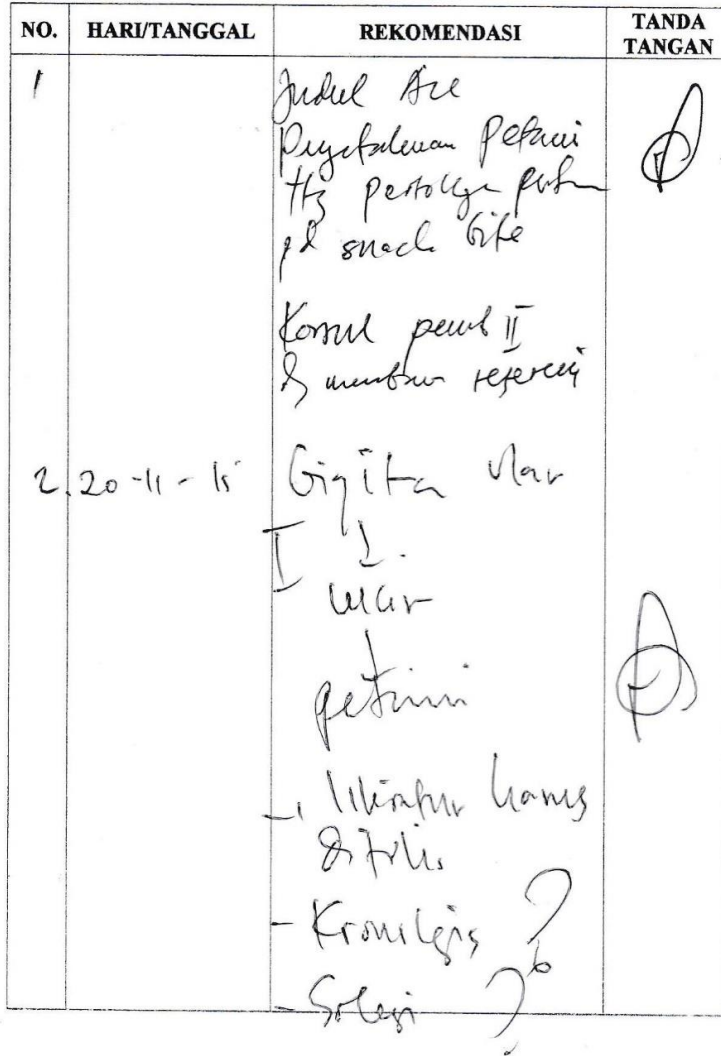 NO. HARI/TANGGAL REKOMENDASI TANDA TANGAN
1 Judul Acc
Pengetahuan Petani
ttg pertolongan pertama
pd snack bite
Konsul pemb II
2. 20-11-15 Gigitan ular
I 1.
ular
petani
- literatur harus
ditulis
- Kronologis ?
- Solusi ?